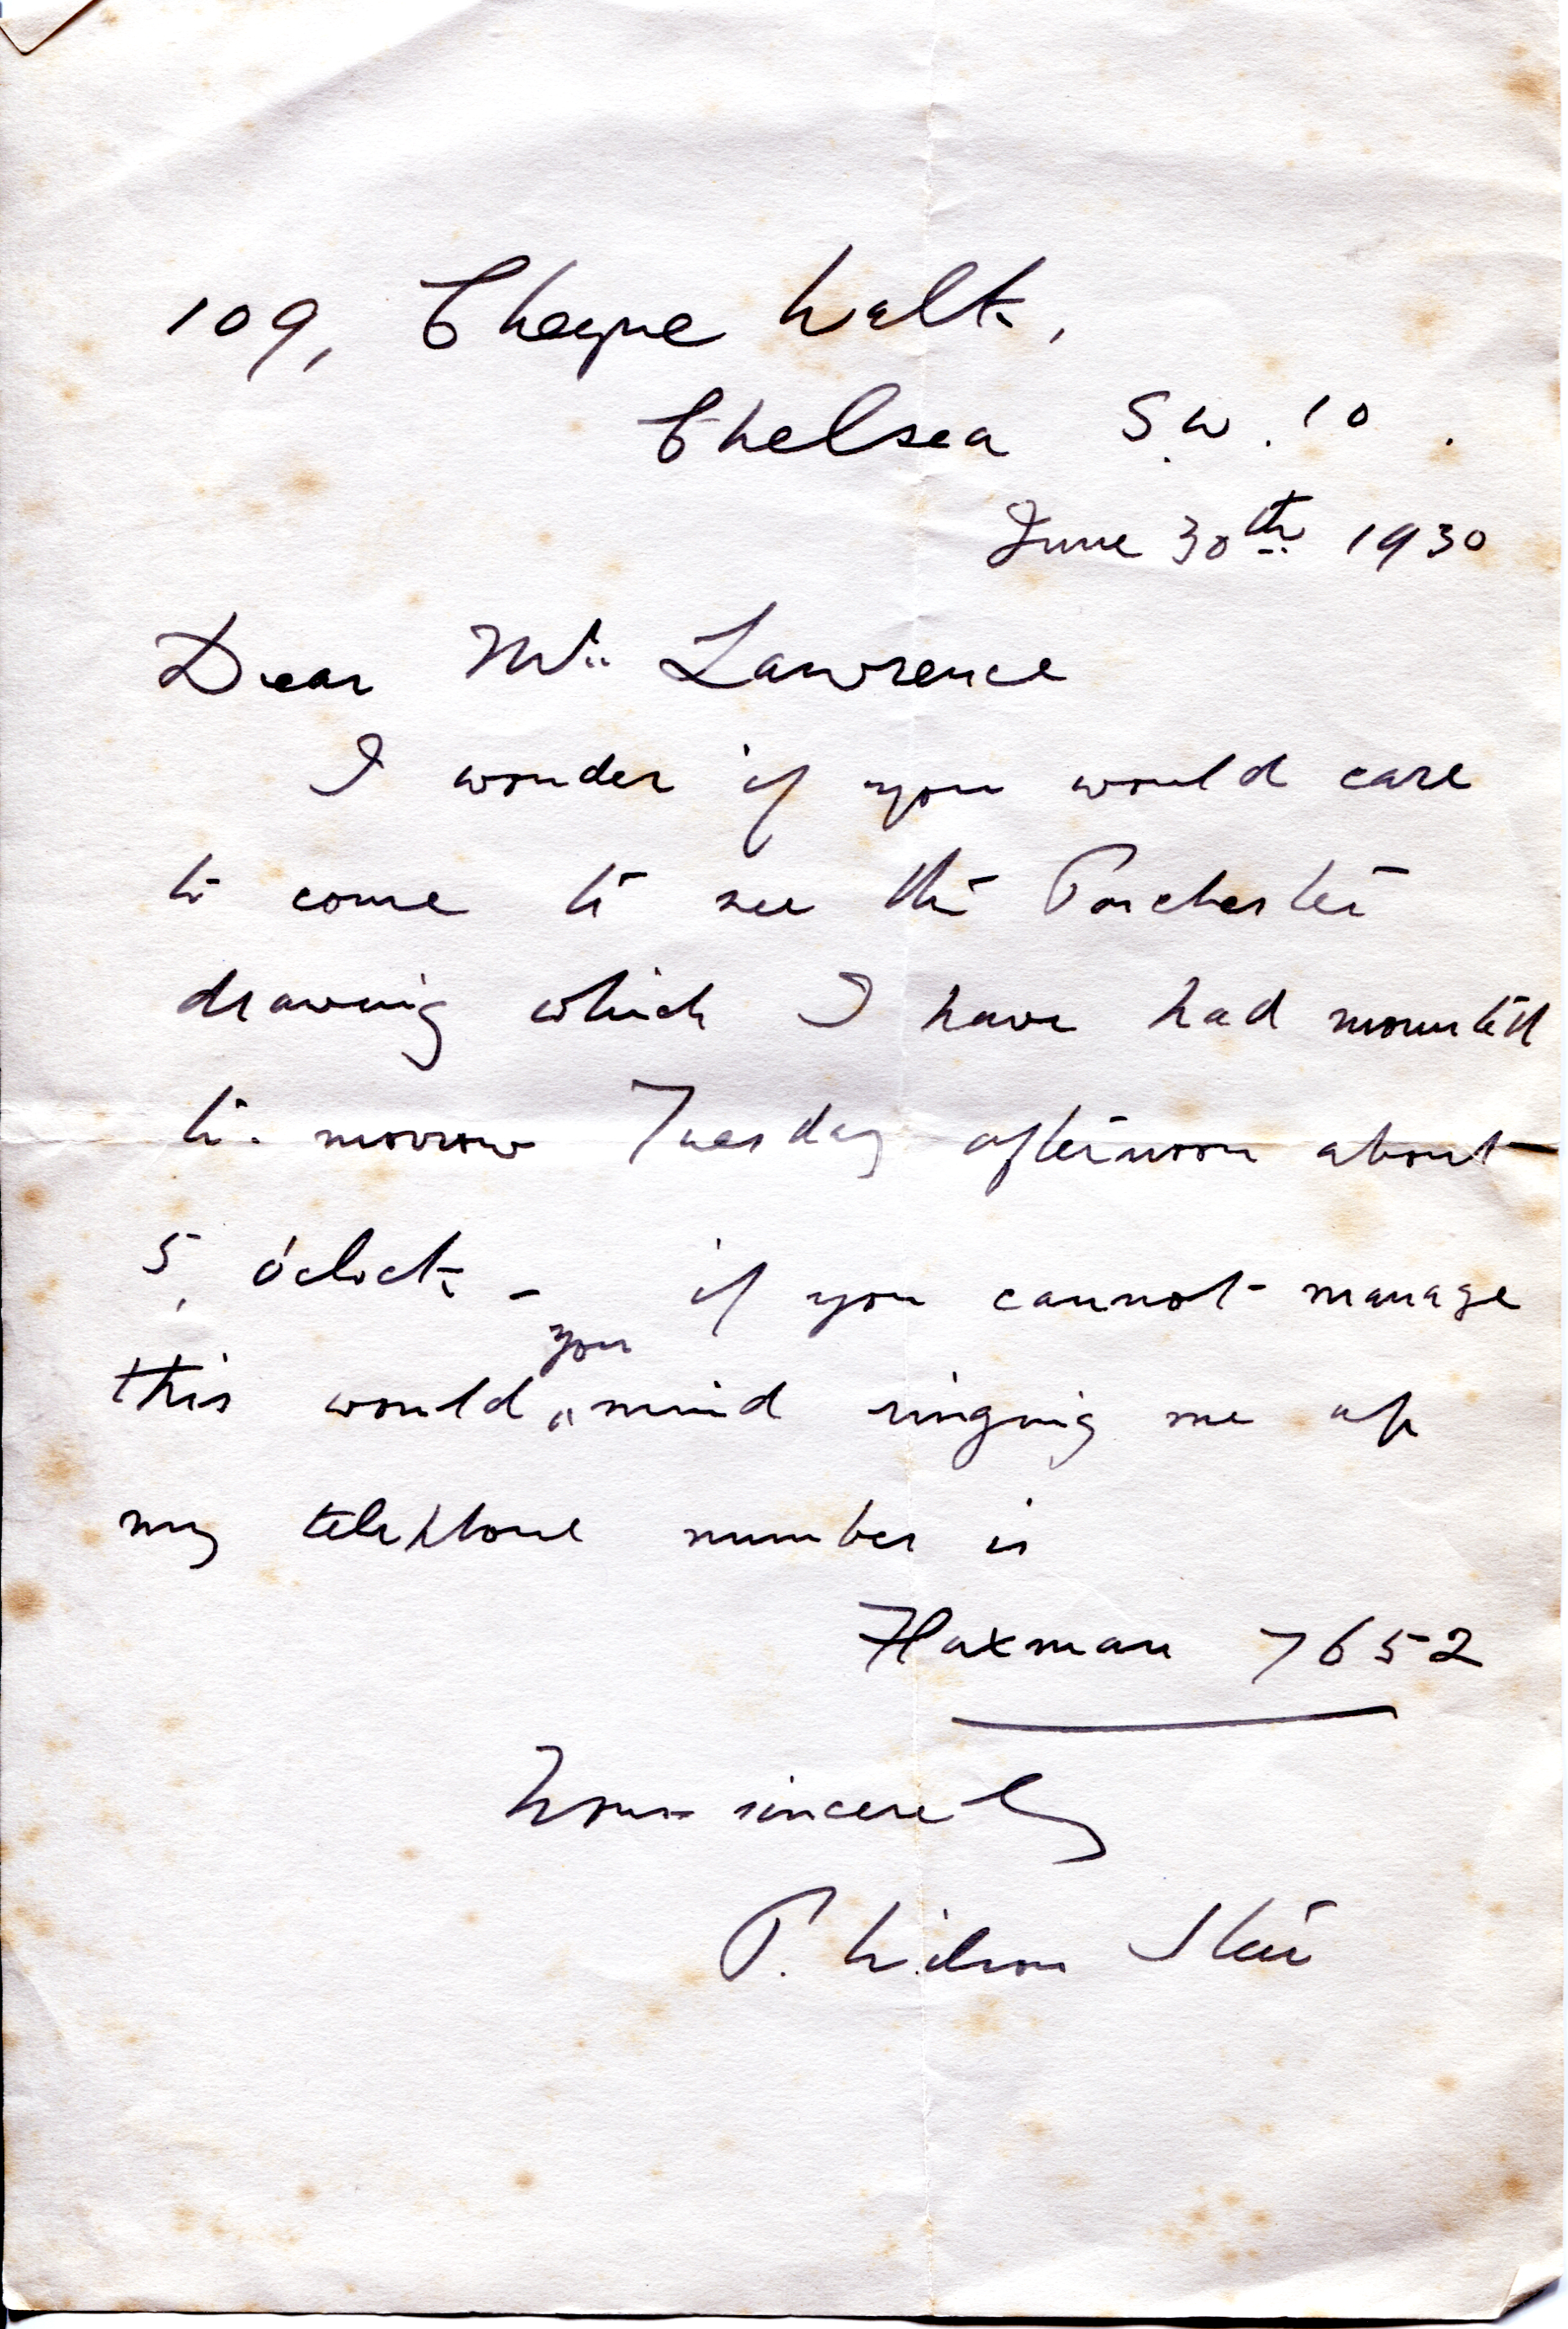 109, Cheyne Walk,
Chelsea S.W.10.
June 30th 1930
Dear Mr. Lawrence
I wonder if you would care
to come to see the Porchester
drawing which I have had mounted
to-morrow Tuesday afternoon about
5, o'clock - if you cannot manage
this would you mind ringing me up
my telephone number is
Flaxman 7652
Yours sincerely
P. Wilson Steer